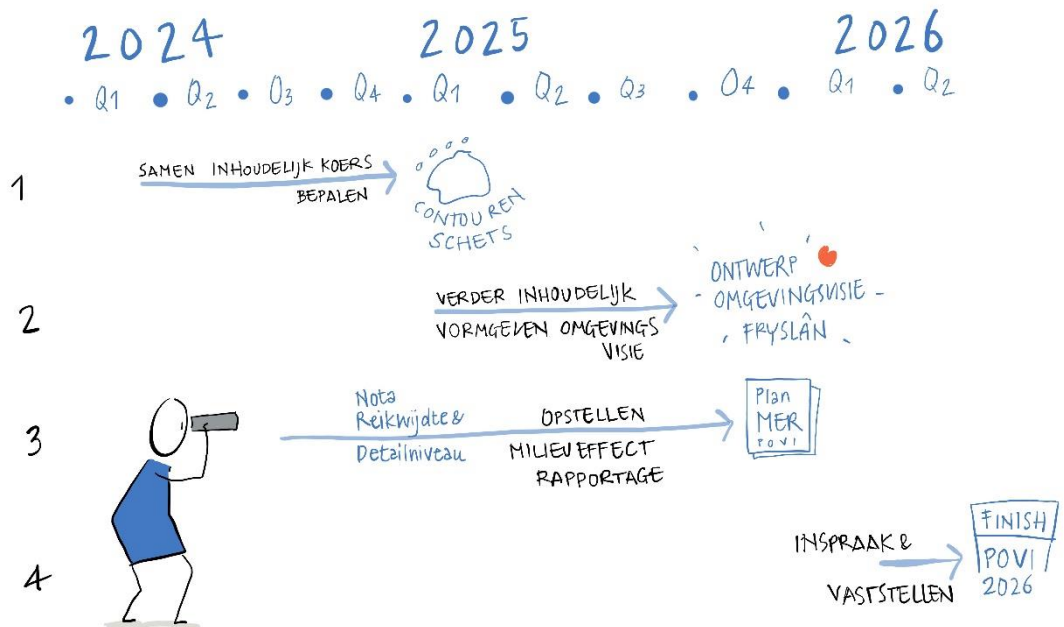 2024 2025 2026
• Q1 • Q2 • Q3 • Q4 • Q1 • Q2 • Q3 • Q4 • Q1 • Q2
1
SAMEN INHOUDELIJK KOERS
BEPALEN
CONTOUREN
SCHETS
2
VERDER INHOUDELIJK
VORMGEVEN OMGEVINGS
VISIE
ONTWERP
OMGEVINGSVISIE
FRYSLÂN
3
Nota
Reikwijdte &
Detailniveau
OPSTELLEN
MILIEUEFFECT
RAPPORTAGE
Plan
MER
POVI
4
INSPRAAK &
VASTSTELLEN
FINISH
POVI
2026